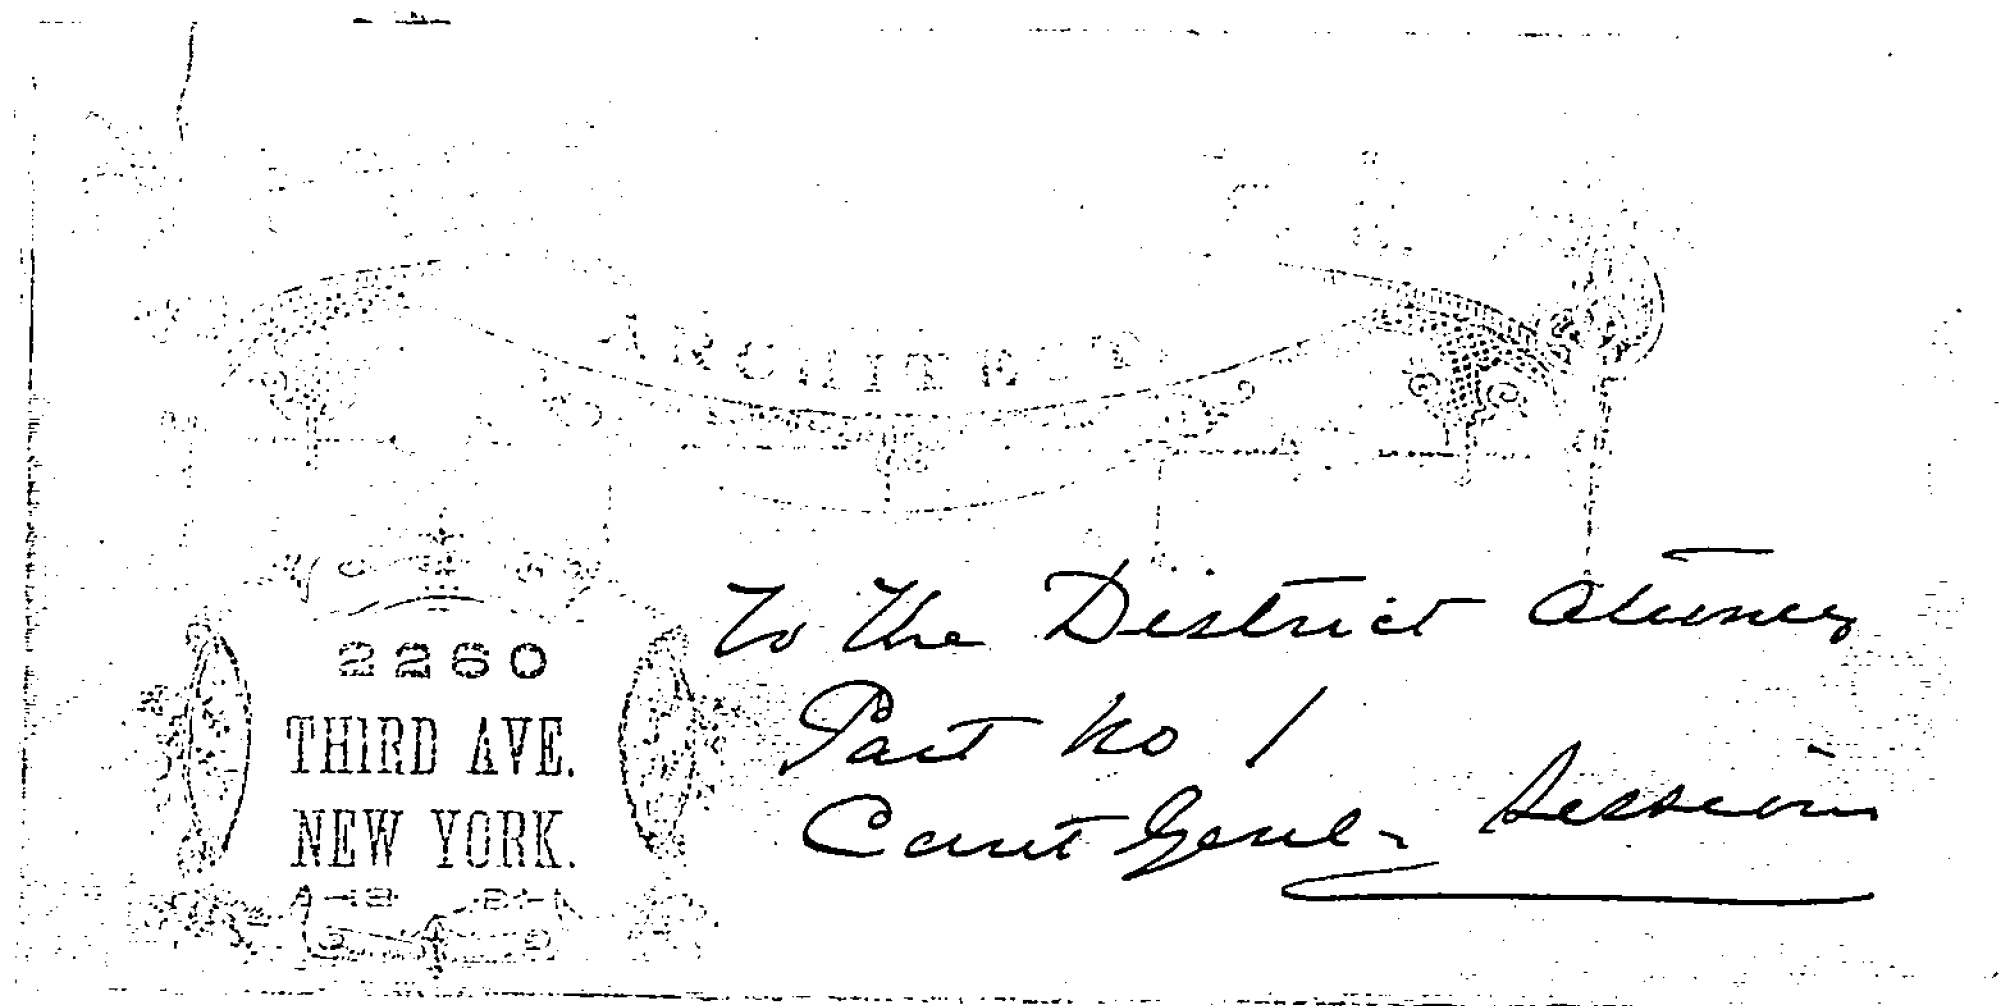 ARCHITECT,
2260
THIRD AVE.
NEW YORK.
To the District Attorney
Part No 1
Court Genl- Sessions